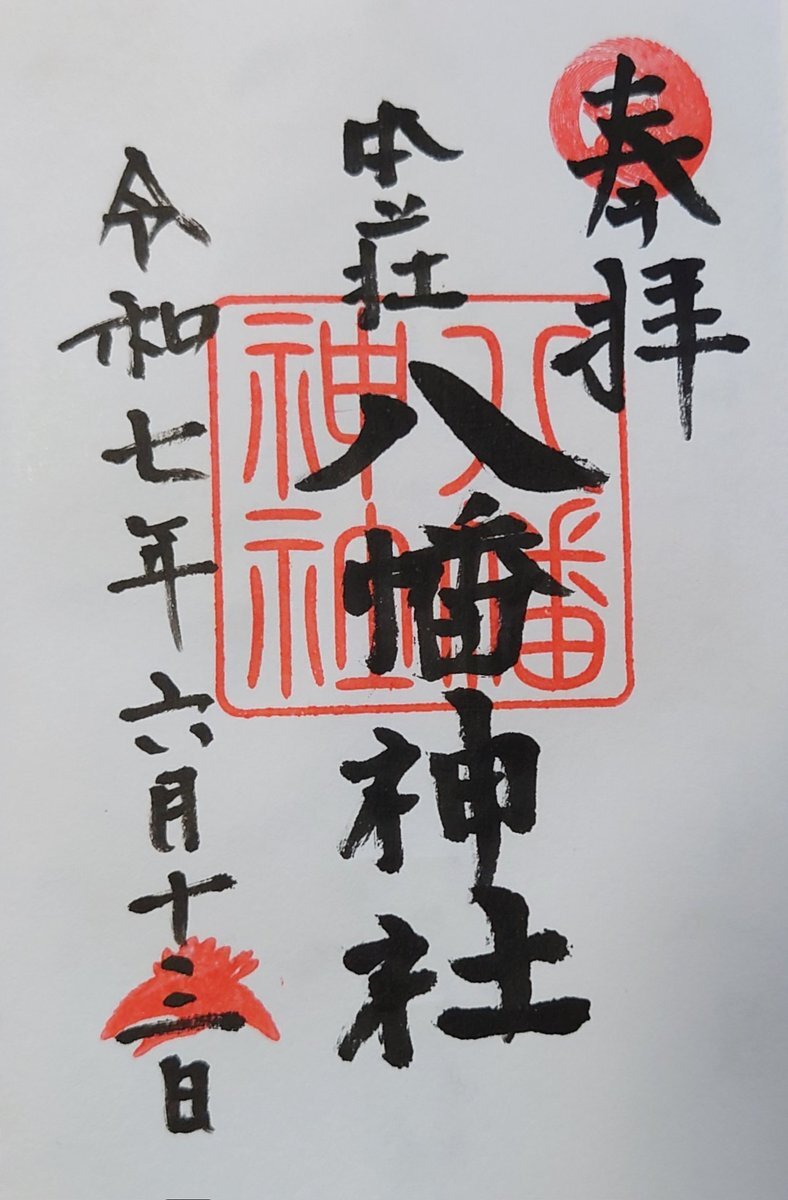 奉拝
本荘
八幡神社
八幡神社
令和七年六月十三日